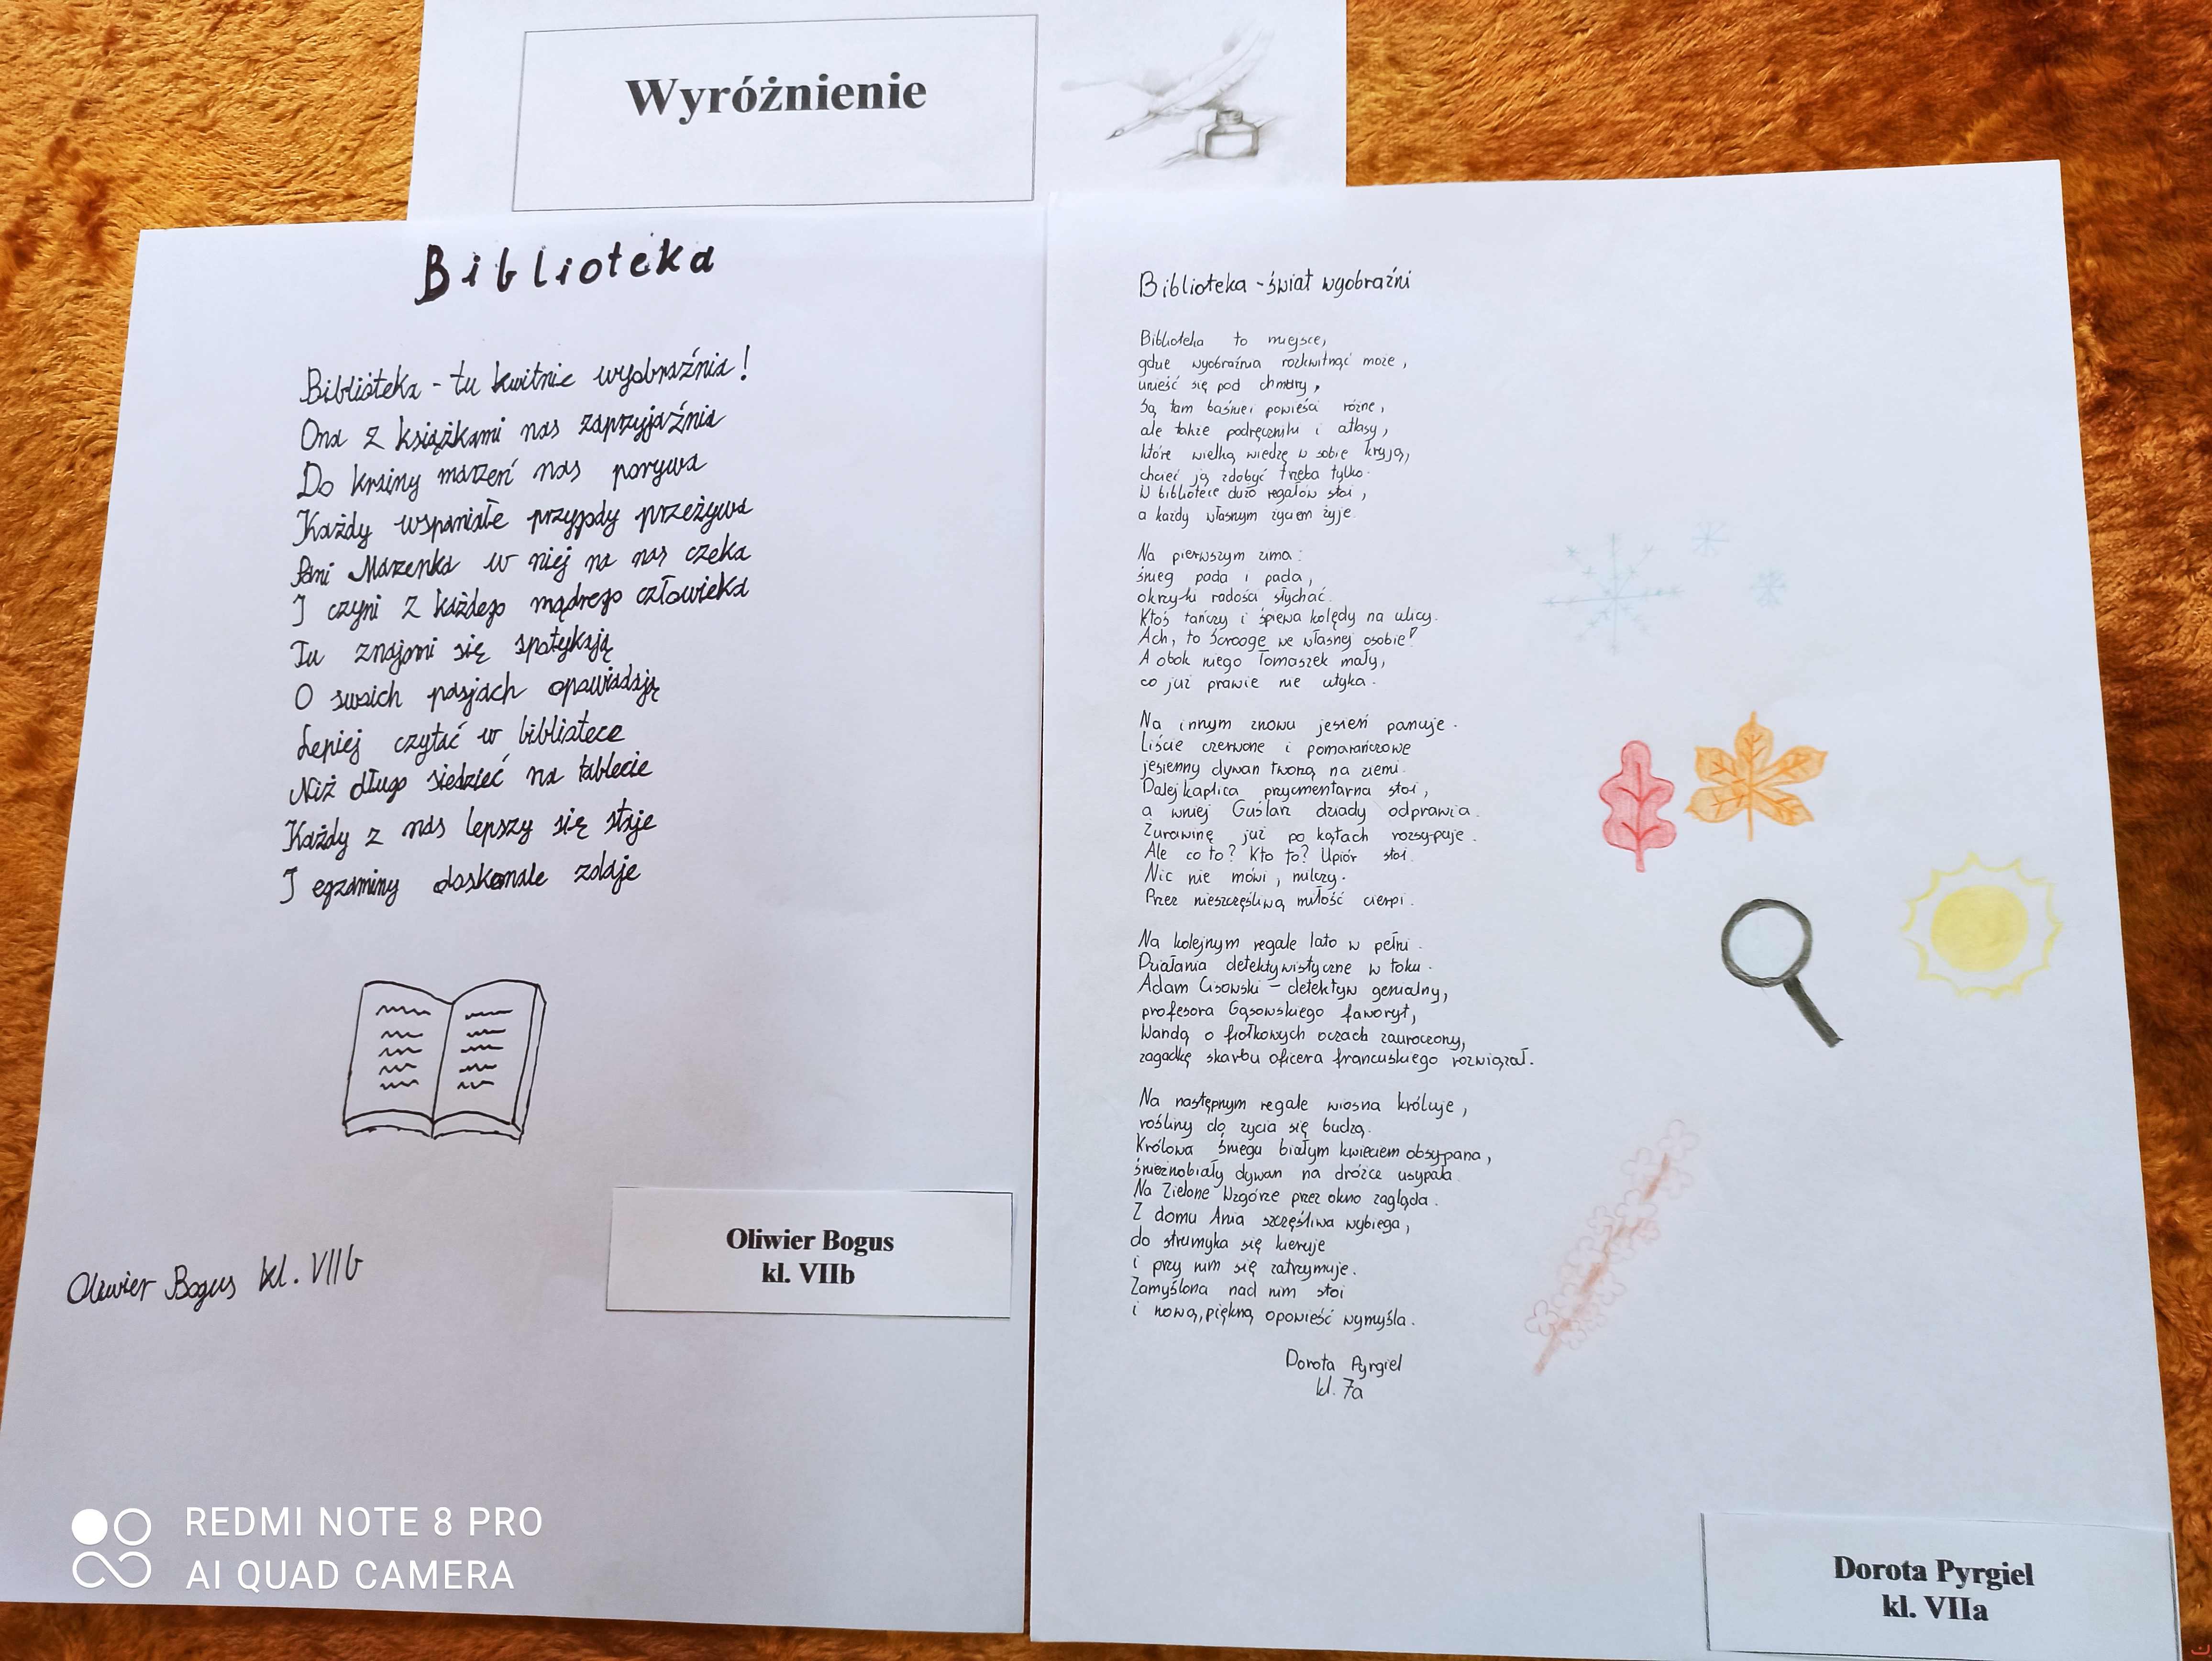 Wyróżnienie
Biblioteka
Biblioteka - tu kwitnie wyobraźnia!
Ona z książkami nas zaprzyjaźnia
Do krainy marzeń nas porywa
Każdy wspaniałe przypdy przeżywa
Pani Marzenka w niej na nas czeka
I czyni z każdego mądrego człowieka
Tu znajomi się spotykają
O swoich pasjach opowiadają
Lepiej czytać w bibliotece
Niż długo siedzieć na tablecie
Każdy z nas lepszy się staje
I egzaminy doskonale zdaje
Oliwier Bogus kl. VIIb
Oliwier Bogus
kl. VIIb
Biblioteka - świat wyobraźni
Biblioteka to miejsce,
gdzie wyobraźnia rozkwitnąć może,
unieść się pod chmury,
Są tam baśnie i powieści różne,
ale także podręczniki i atlasy,
które wielką wiedzę w sobie kryją,
chcieć ją zdobyć trzeba tylko.
W bibliotece dużo regałów stoi,
a każdy własnym życiem żyje.
Na pierwszym zima:
śnieg pada i pada,
okrzyki radości słychać.
Ktoś tańczy i śpiewa kolędy na ulicy.
Ach, to Scrooge we własnej osobie!
A obok niego Tomaszek mały,
co już prawie nie utyka.
Na innym znowu jesień panuje.
Liście czerwone i pomarańczowe
jesienny dywan tworzą na ziemi.
Dalej kaplica przycmentarna stoi,
a wniej Guślarz dziady odprawia.
Żurawinę już po kątach rozsypuje.
Ale co to? Kto to? Upiór stoi.
Nic nie mówi, milczy.
Przez nieszczęśliwą miłość cierpi.
Na kolejnym regale lato w pełni.
Działania detektywistyczne w toku.
Adam Cisowski - detektyw genialny,
profesora Gąsowskiego faworyt,
Wandą o fiołkowych oczach zauroczony,
zagadkę skarbu oficera francuskiego rozwiązał.
Na następnym regale wiosna króluje,
rośliny do życia się budzą.
Królowa Śniegu białym kwieciem obsypana,
śnieżnobiały dywan na dróżce usypała.
Na Zielone Wzgórze przez okno zagląda.
Z domu Ania szczęśliwa wybiega,
do strumyka się kieruje
i przy nim się zatrzymuje.
Zamyślona nad nim stoi
i nową, piękną opowieść wymyśla.
Dorota Pyrgiel
kl. 7a
Dorota Pyrgiel
kl. VIIa
REDMI NOTE 8 PRO
AI QUAD CAMERA